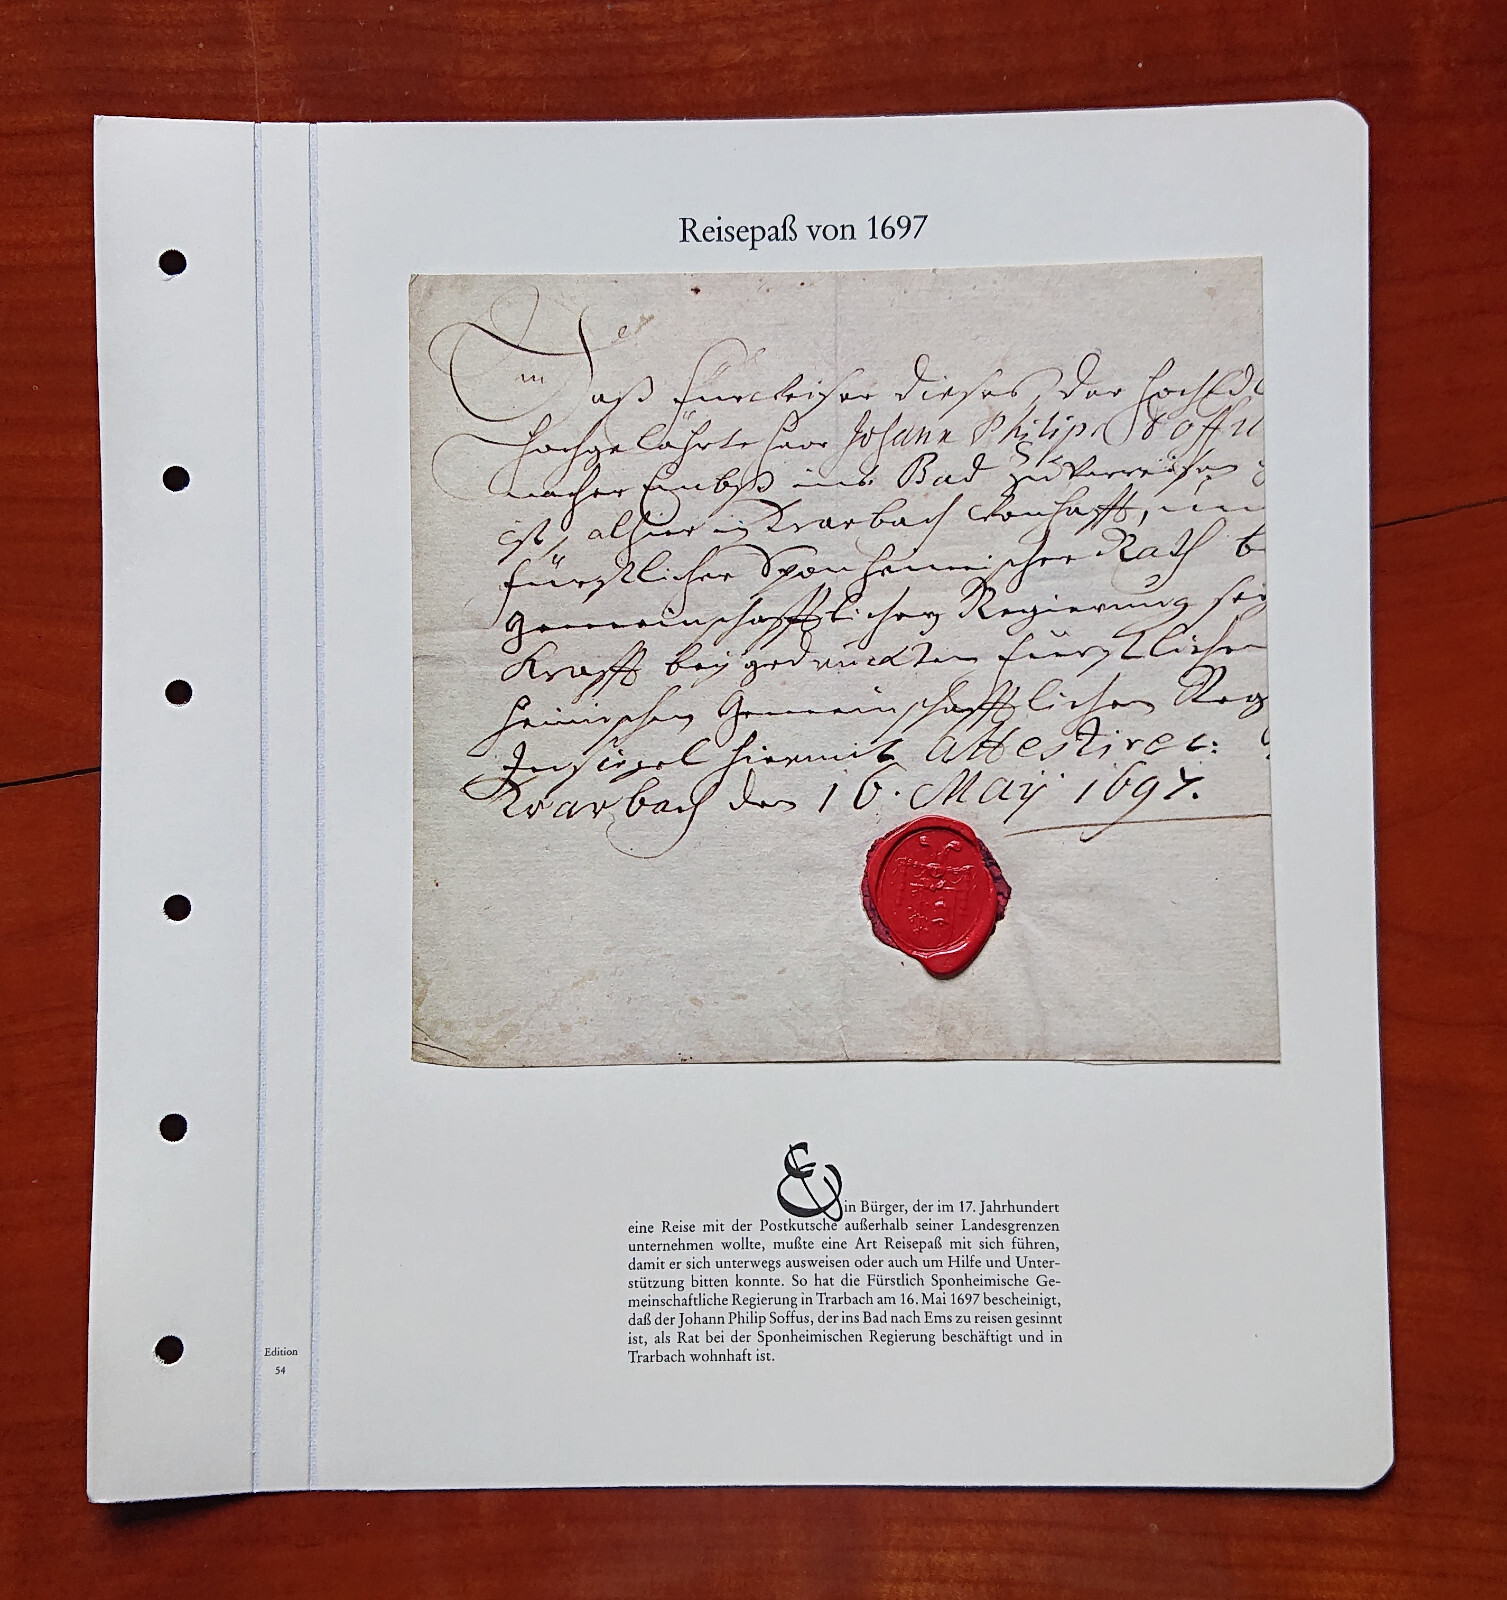 Reisepaß von 1697
Daß Fürweiser dieses, der HochEdl
Hochgelährte Herr Johann Philips Soffu
nacher Embß ins Bad zu verreisen
ist, alhier in Trarbach wonhafft, und
fürstlicher Sponheimischer Rath be
gemeinschafftlicher Regierung sey
Krafft beygedruckten fürstlichen
heimischen Gemeinschafftlichen Reg
Insiegel hiermit attestiret:
Trarbach den 16. Maij 1697.
Ein Bürger, der im 17. Jahrhundert
eine Reise mit der Postkutsche außerhalb seiner Landesgrenzen
unternehmen wollte, mußte eine Art Reisepaß mit sich führen,
damit er sich unterwegs ausweisen oder auch um Hilfe und Unter-
stützung bitten konnte. So hat die Fürstlich Sponheimische Ge-
meinschaftliche Regierung in Trarbach am 16. Mai 1697 bescheinigt,
daß der Johann Philip Soffus, der ins Bad nach Ems zu reisen gesinnt
ist, als Rat bei der Sponheimischen Regierung beschäftigt und in
Trarbach wohnhaft ist.
Edition
54